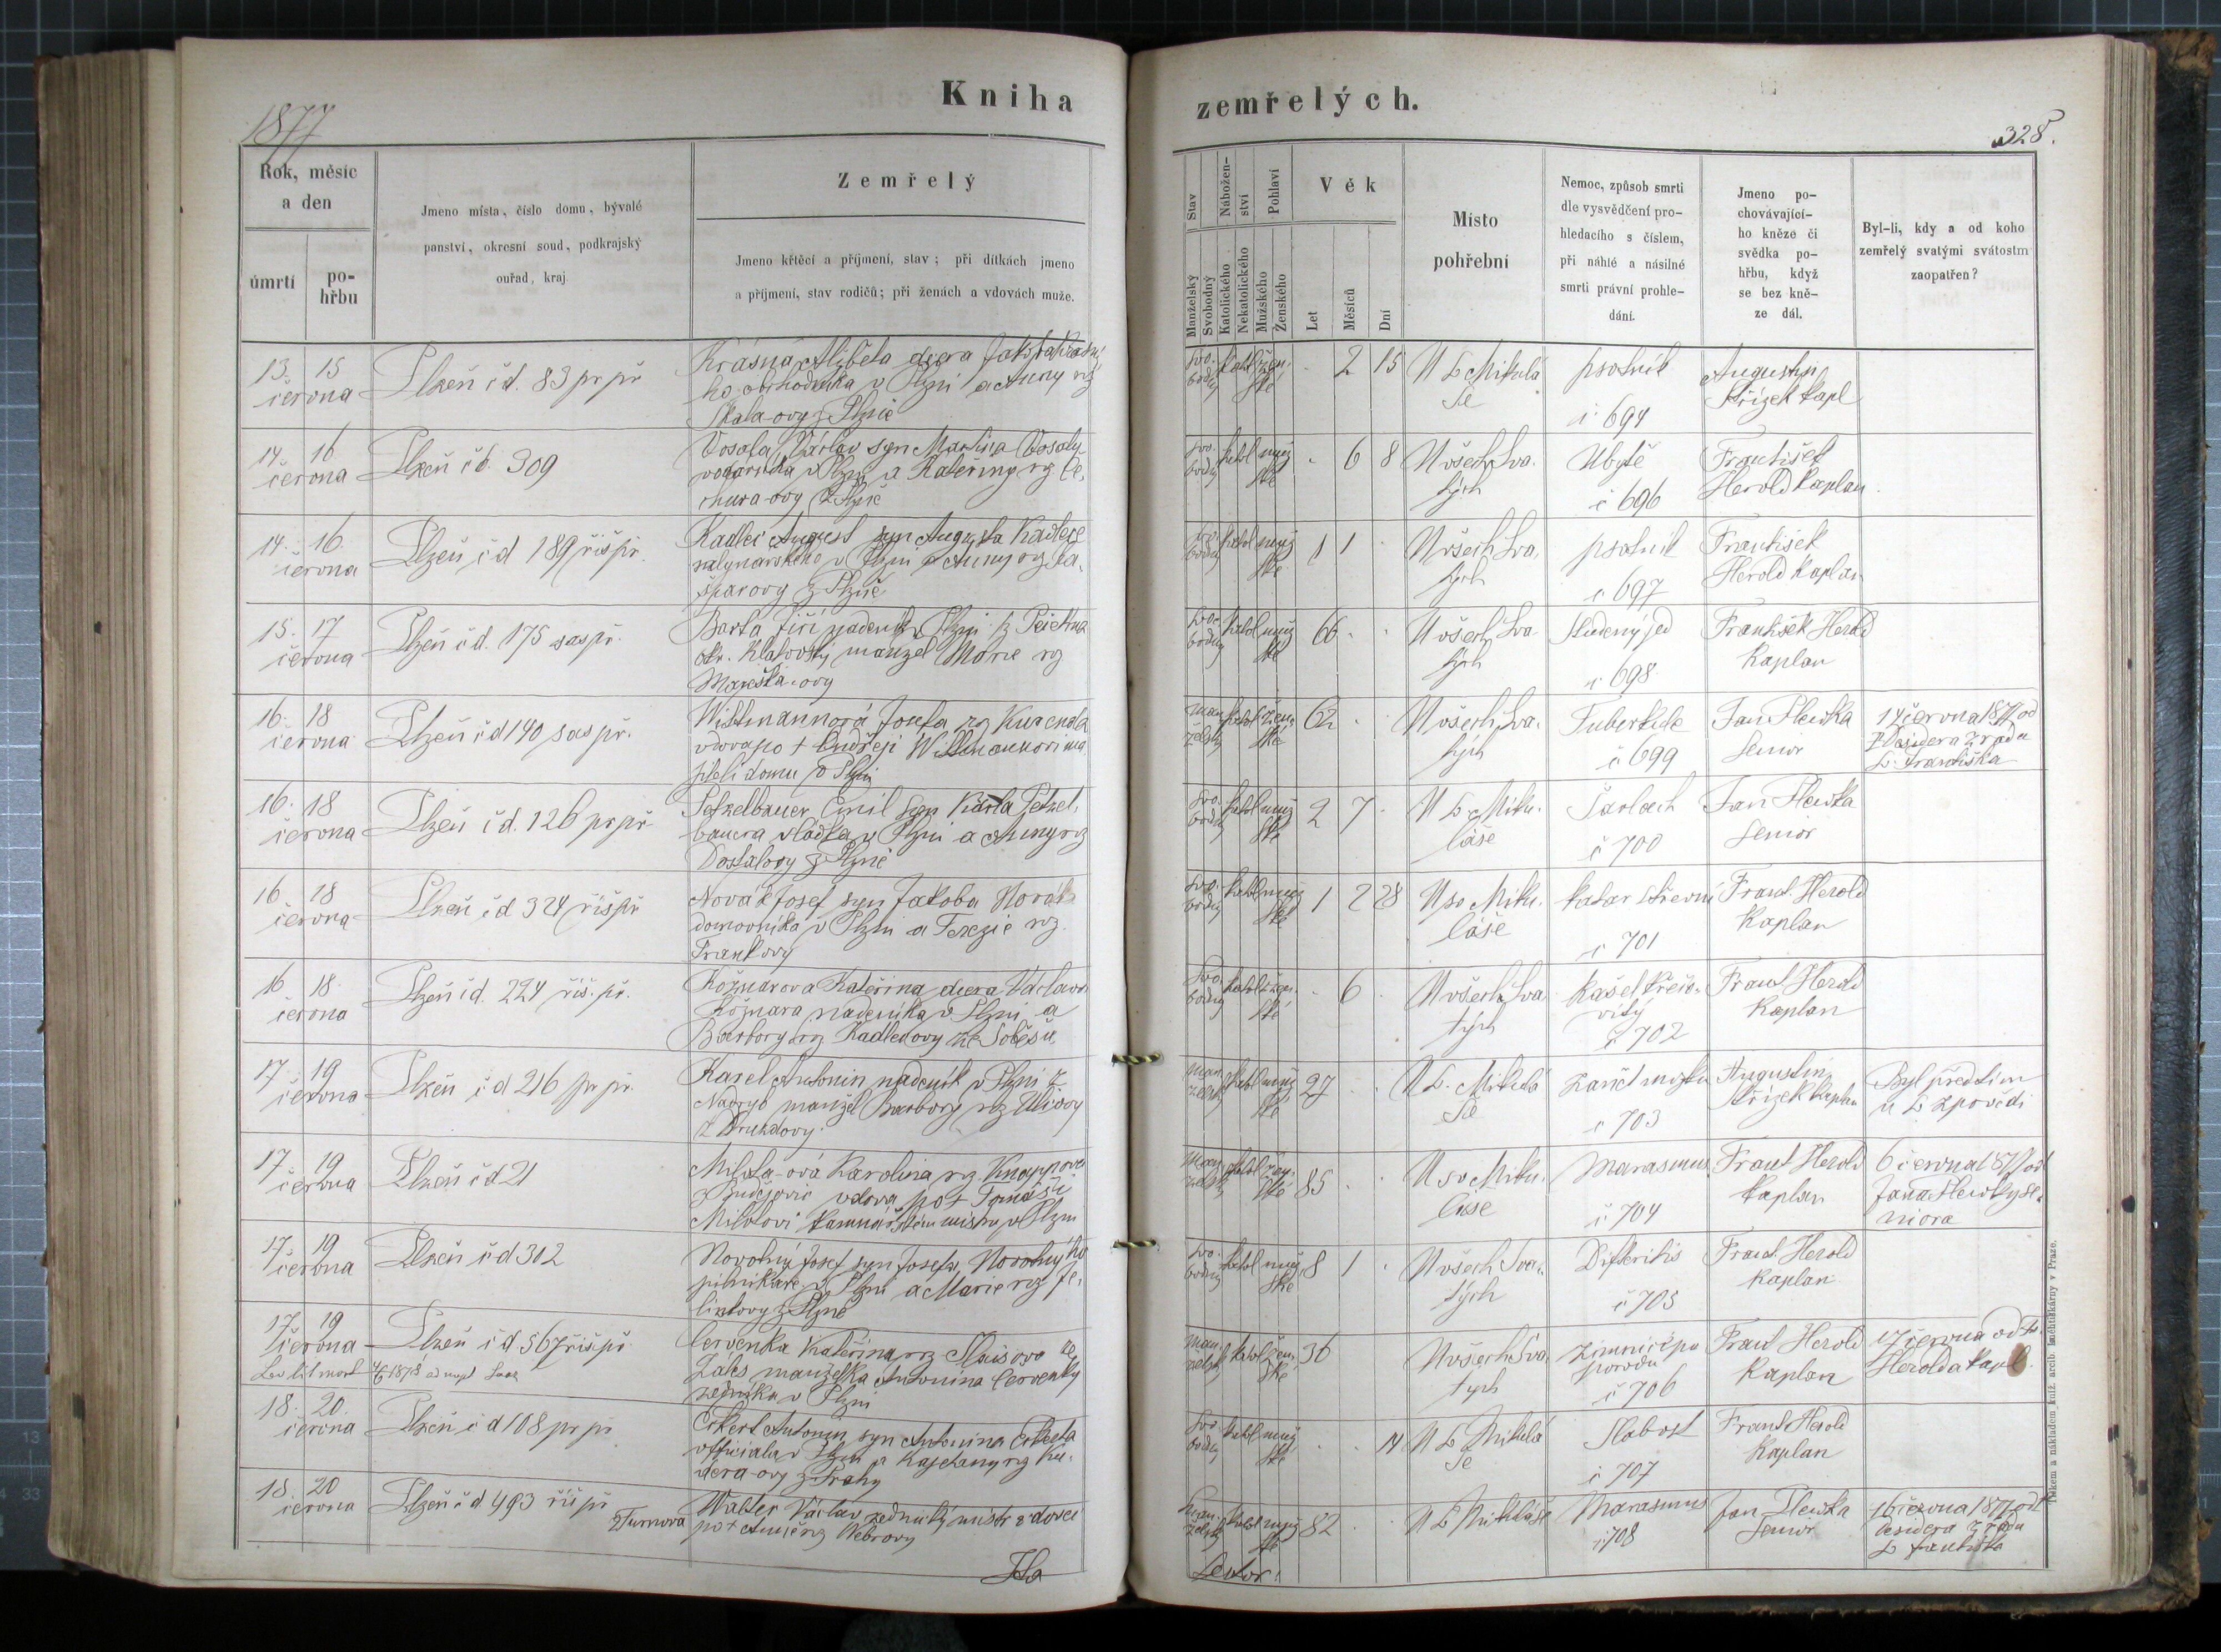 Kniha
zemřelých.
1877
328.
Rok, měsíc
a den
úmrtí
po-
hřbu
Jmeno místa, číslo domu, bývalé
panství, okresní soud, podkrajský
ouřad, kraj
Zemřelý
Jmeno křtěcí a příjmení, stav; při dítkách jmeno
a příjmení, stav rodičů; při ženách a vdovách muže.
Stav
Manželský
Svobodný
Nábožen-
ství
Katolického
Nekatolického
Pohlaví
Mužského
Ženského
Věk
Let
Měsíců
Dní
Místo
pohřební
Nemoc, způsob smrti
dle vysvědčení pro-
hledacího s číslem,
při náhlé a násilné
smrti právní prohle-
dání.
Jmeno po-
chovávající-
ho kněze či
svědka po-
hřbu, když
se bez kně-
ze dál.
Byl-li, kdy a od koho
zemřelý svatými svátostm
zaopatřen?
13. 15
června
Plzeň čd. 83 pr př
Krásná Alžběta dcera Jakoba
ho obchodníka v Plzni a Anny rz
Skala-ovy z Plzně
svo-
bodný
katol
žen-
ské
2 15
U S. Mikulá
še
psotník
č 694
Augustin
Střízek kapl
14. 16
června
Plzeň čd. 309
Vosala Václav syn Martina Vosaly
v Plzni a Kateřiny rz Če-
chura-ovy z Plzně
svo-
bodný
katol
muž
ské
6 8
U všech Sva-
tých
Ubytě
č 696
František
Herold kaplan
14. 16
června
Plzeň čd 189 říš př.
Kadlec August syn Augusta Kadlece
mlynářského v Plzni a Anny rz Ka-
šparovy z Plzně
svo-
bodný
katol
muž
ské
1 1
U všech Sva-
tých
psotník
č 697
František
Herold kaplan
15. 17
června
Plzeň čd. 175 sas př.
Barta Jiří nadeník v Plzni z
okr. Klatovský manžel Marie rz
svo-
bodný
katol
muž
ské
66
U všech Sva-
tých
Studený jed
č 698
František Herold
kaplan
16. 18
června
Plzeň čd 140 sas př.
Wittmannová Josefa rz Kurenda
vdova po + Ondřeji Wittmannovi ma-
jiteli domu v Plzni
man
želský
katol
žen-
ské
62
U všech Sva-
tých
Tuberkule
č 699
Jan Hlewka
Senior
14 června 1877 od
P Desidera z řádu
S. Františka
16. 18
června
Plzeň čd. 126 pr př
Petzelbauer Emil syn Karla Petzel-
bauera v Plzni a Anny rz
Dostalovy z Plzně
svo-
bodný
katol
muž
ské
2 7
U S. Miku-
láše
Šarlach
č 700
Jan Hlewka
Senior
16 18
června
Plzeň čd 324 říš př
Novák Josef syn Jakoba Nováka
domovníka v Plzni a Terezie rz.
Frankovy
svo-
bodný
katol
muž
ské
1 2 28
U sv Miku-
láše
katar střevní
č 701
Frant. Herold
kaplan
16 18
června
Plzeň čd. 224 říš. př.
Kožnarova Kateřina dcera Václava
Kožnara nadeníka v Plzni a
Barbory rz Kadlecovy ze Soběšic
svo-
bodný
katol
žen-
ské
6
U všech Sva-
tých
Kašel křečo-
vitý
č 702
Frant Herold
kaplan
17 19
června
Plzeň čd 216 pr př.
Karel Antonin nadeník v Plzni z
Nadryb manžel Barbory rz
man-
želský
katol
muž
ské
27
U S. Mikulá
še
zánět mozku
č 703
Augustin
Střízek kaplan
Byl předtím
u S zpovědi
17 19
června
Plzeň čd 21
Milota-ová Karolina rz Knappova
z Budějovic vdova po + Tomáši
Milotovi kamnářském mistru v Plzni
man
želský
katol
žen
ské
85
U sv Miku-
láše
Marasmus
č 704
Frant Herold
kaplan
6 června 1877 od
Jana Hlewky se-
niora
17 19
června
Plzeň čd 302
Novotný Josef syn Josefa Novotný ho
pilnikáře v Plzni a Marie rz Je-
linkovy z Plzně
svo-
bodný
katol
muž
ské
8 1
U všech Sva-
tých
Difteritis
č 705
Frant. Herold
kaplan
17. 19
června
Plzeň čd. 567 říš př
Červenka Kateřina rz ze
Záles manželka Antonina Červenky
zedníka v Plzni
man-
želský
katol
žen-
ské
36
U všech Sva
tých
zimnice po
porodu
č 706
Frant Herold
kaplan
17 června od Fr.
Herolda kapl.
18. 20.
června
Plzeň čd 108 pr př
Eckert Antonin syn Antonina Eckerta
officiala v Plzni a Kajetany rz Ku-
dera-ovy z Prahy
svo-
bodný
katol
muž
ské
14
U S Mikulá
še
Slabost
č 707
Frant Herold
kaplan
18. 20
června
Plzeň čd 493 říš př
z Turnova
Walter Václav zednický mistr vdovec
po + Anně rz Webrovy
man-
želský
katol
muž
ské
82
U S Mikuláše
Marasmus
č 708
Jan Hlewka
Senior
16 června 1877 od
Desidera z řádu
S Františka
Tiskem a nákladem kníž. arcib. knihtiskárny v Praze.